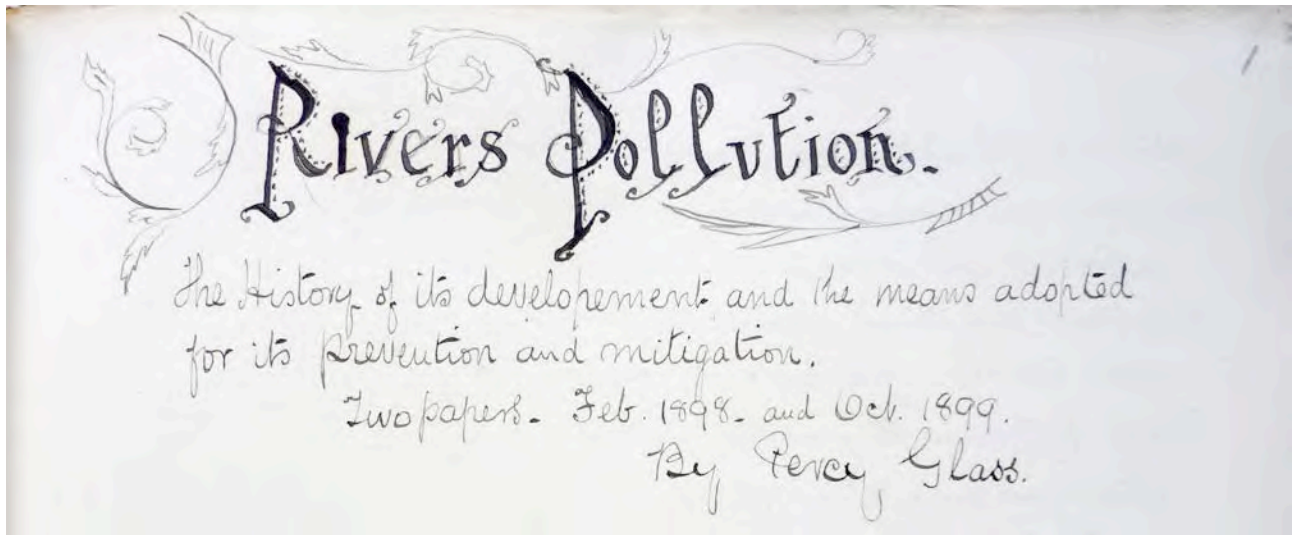 Rivers Pollution.
The History of its developement and the means adopted
for its prevention and mitigation.
Two papers. Feb. 1898. and Oct. 1899.
By Percy Glass.